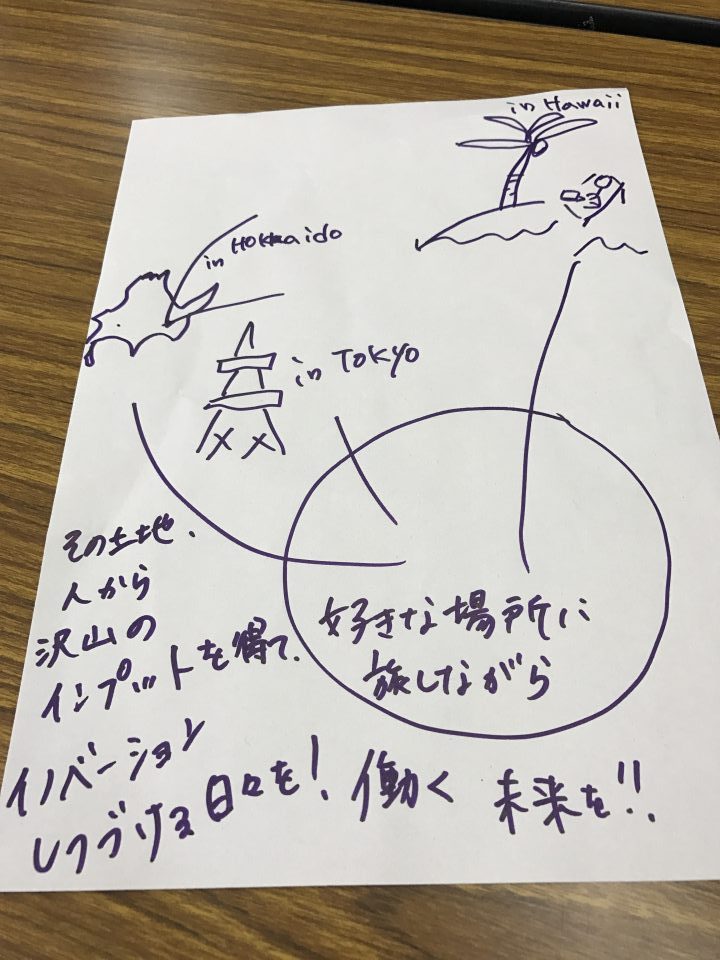 in Hawaii
in Hokkaido
in TOKYO
その土地、
人から
沢山の
インプットを得て、
イノベーション
しつづける日々を!
好きな場所に
旅しながら
働く 未来を!!